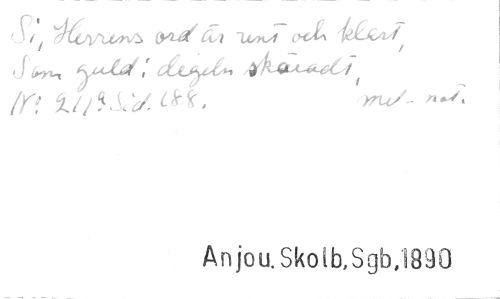 Si, Herrens ord är rent och klart,
Som guld i degeln skäradt,
N: 211ª Sid. 188. met. not.
Anjou. Skolb, Sgb, 1890